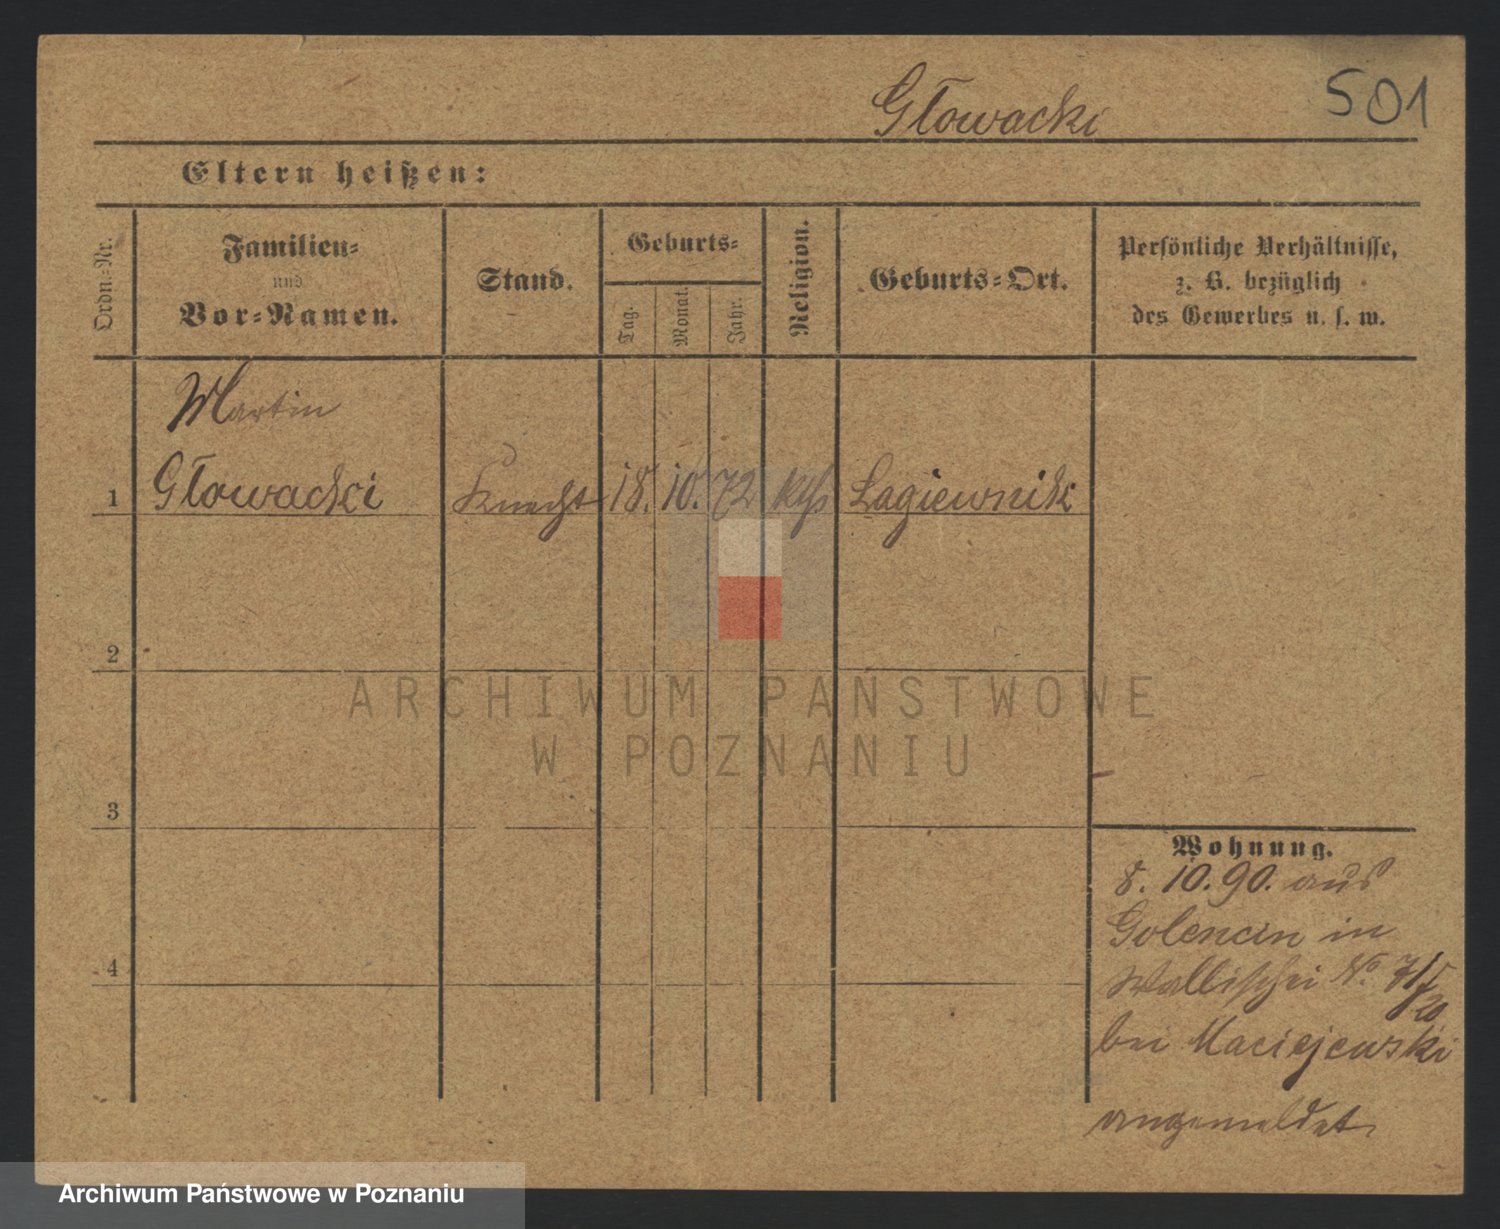 Głowacki
501
Eltern heißen:
Ordn.-Nr.
Familien-
und
Vor-Namen.
Stand.
Geburts-
Tag.
Monat.
Jahr.
Religion.
Geburts-Ort.
Persönliche Verhältnisse,
z. B. bezüglich
des Gewerbes u. s. w.
Martin
1 Głowacki Knecht 18. 10. 72 kth Lagiewnik
2
ARCHIWUM PAŃSTWOWE
W POZNANIU
3
Wohnung.
8. 10. 90. aus
Golencin in
4
Wallischei No.
bei Maciejewski
angemeldet
Archiwum Państwowe w Poznaniu